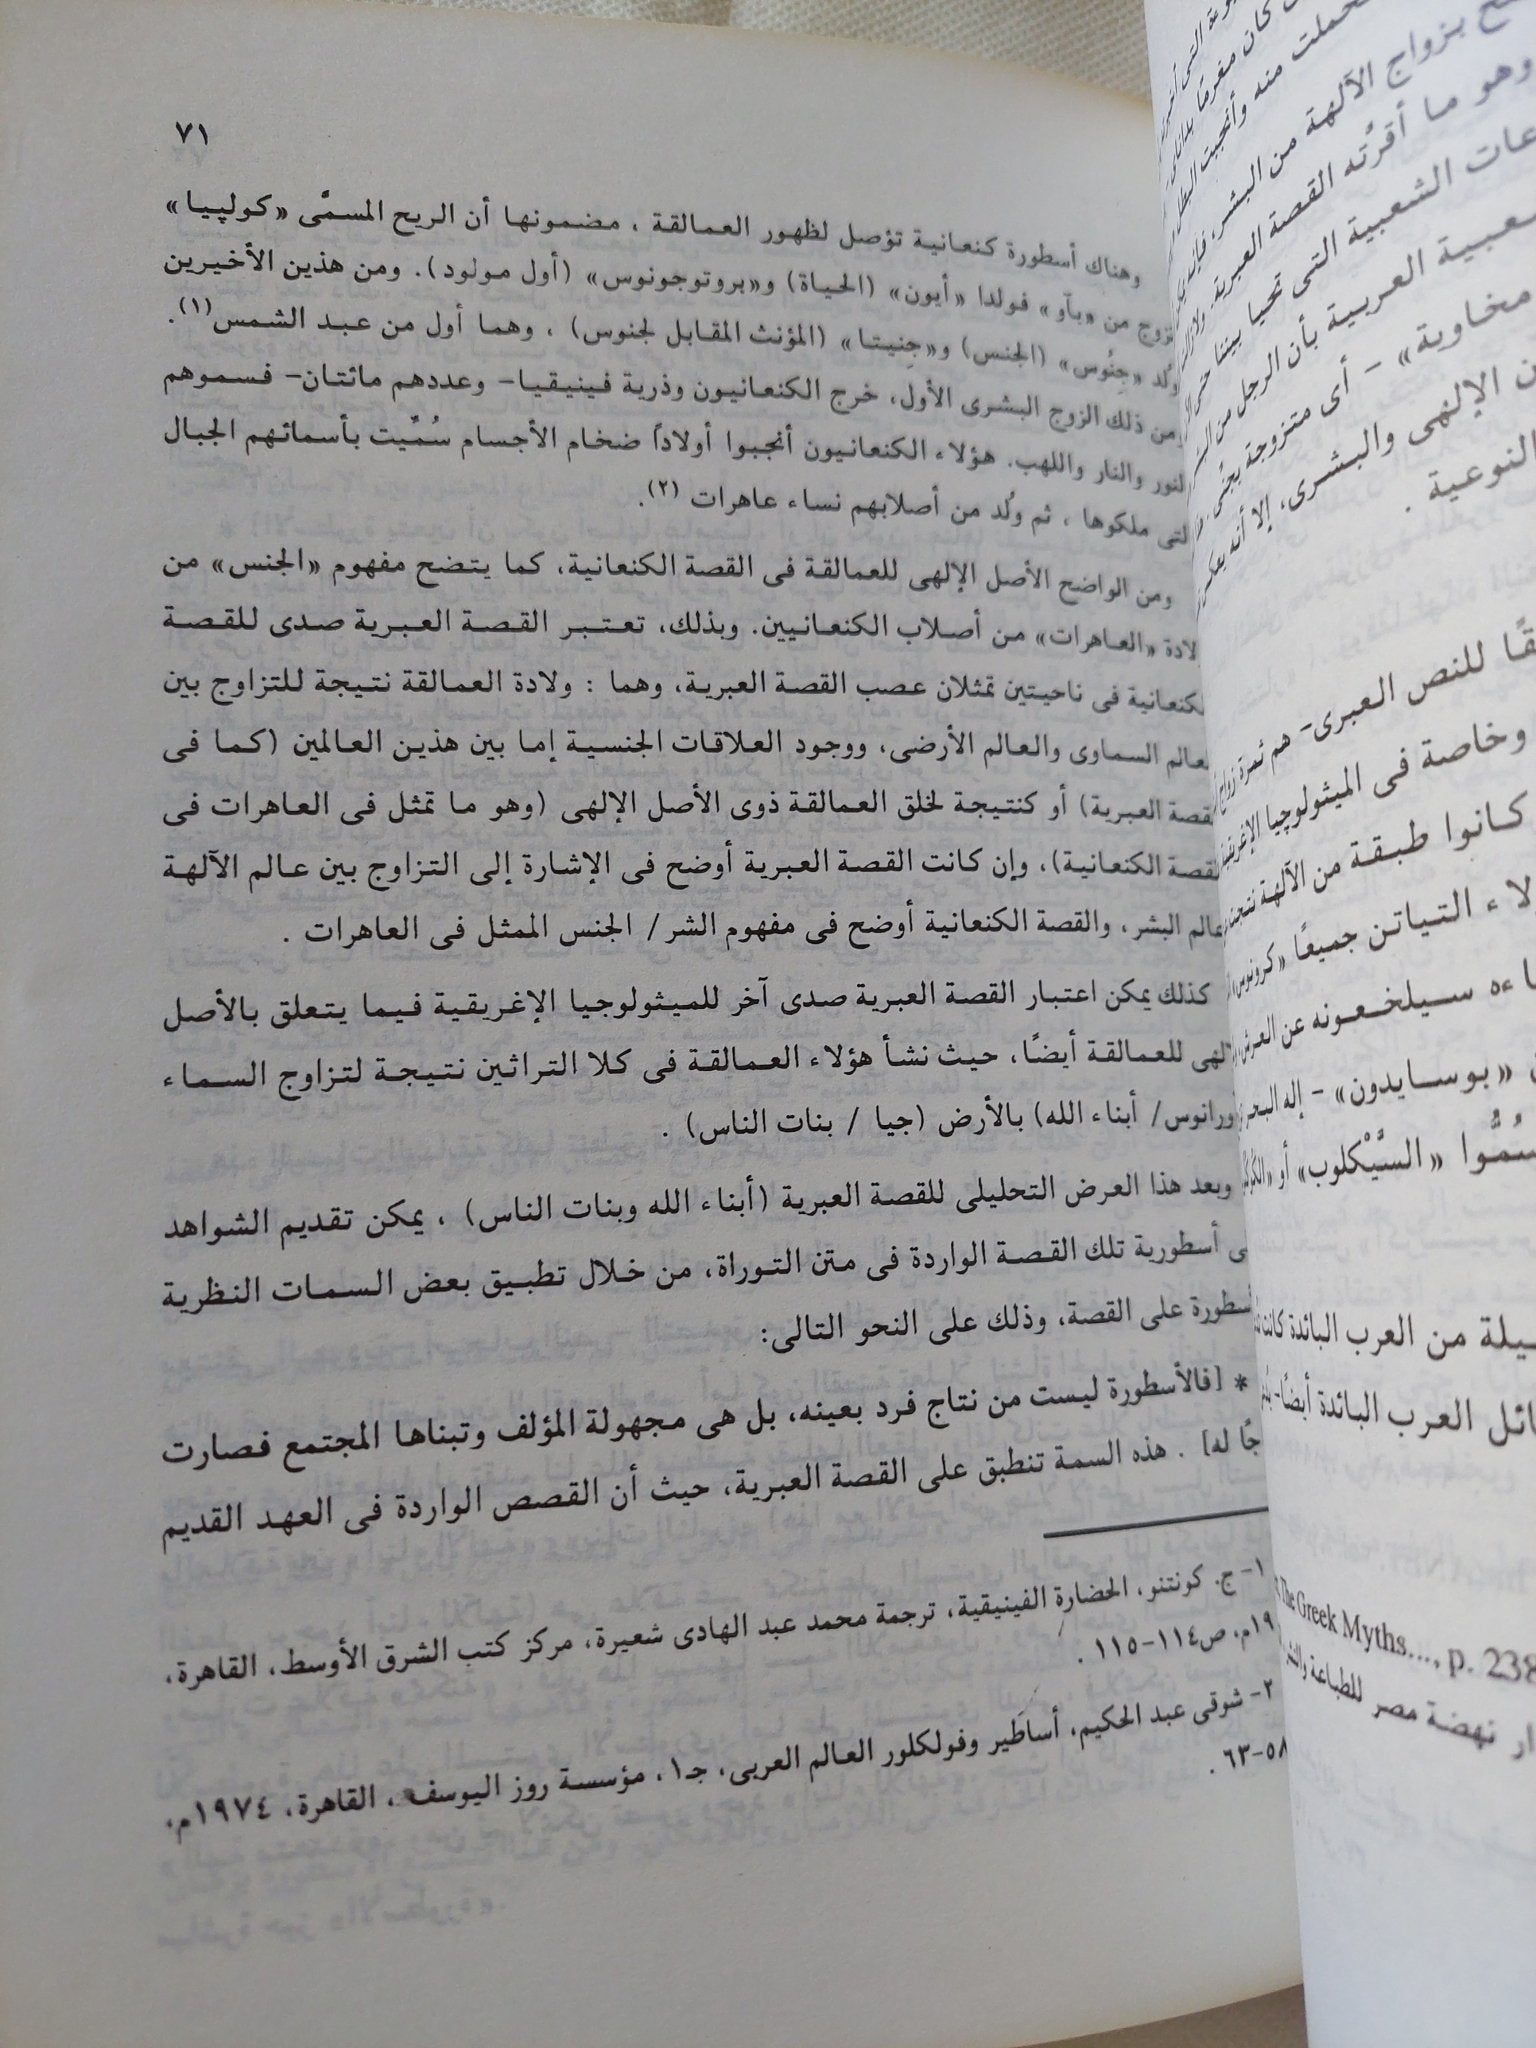 ٧١
وهناك أسطورة كنعانية تؤصل لظهور العمالقة ، مضمونها أن الريح المسمَّى «كولپيا»
تزوج من «بآو» فولدا «أيون» (الحياة) و«بروتوجونوس» (أول مولود). ومن هذين الأخيرين
وُلد «جِنُوس» (الجنس) و«جِنيتا» (المؤنث المقابل لجنوس) ، وهما أول من عبد الشمس(١).
ومن ذلك الزوج البشرى الأول، خرج الكنعانيون وذرية فينيقيا- وعددهم مائتان- فسموهم
لنور والنار واللهب. هؤلاء الكنعانيون أنجبوا أولاداً ضخام الأجسام سُمِّيت بأسمائهم الجبال
لتى ملكوها ، ثم وُلد من أصلابهم نساء عاهرات (٢).
ومن الواضح الأصل الإلهى للعمالقة فى القصة الكنعانية، كما يتضح مفهوم «الجنس» من
لادة «العاهرات» من أصلاب الكنعانيين. وبذلك، تعتبر القصة العبرية صدى للقصة
لكنعانية فى ناحيتين تمثلان عصب القصة العبرية، وهما : ولادة العمالقة نتيجة للتزاوج بين
لعالم السماوى والعالم الأرضى، ووجود العلاقات الجنسية إما بين هذين العالمين (كما فى
لقصة العبرية) أو كنتيجة لخلق العمالقة ذوى الأصل الإلهى (وهو ما تمثل فى العاهرات فى
لقصة الكنعانية)، وإن كانت القصة العبرية أوضح فى الإشارة إلى التزاوج بين عالم الآلهة
عالم البشر، والقصة الكنعانية أوضح فى مفهوم الشر/ الجنس الممثل فى العاهرات .
كذلك يمكن اعتبار القصة العبرية صدى آخر للميثولوجيا الإغريقية فيما يتعلق بالأصل
لإلهى للعمالقة أيضًا، حيث نشأ هؤلاء العمالقة فى كلا التراثين نتيجة لتزاوج السماء
ورانوس/ أبناء الله) بالأرض (جيا / بنات الناس) .
وبعد هذا العرض التحليلى للقصة العبرية (أبناء الله وبنات الناس) ، يمكن تقديم الشواهد
لى أسطورية تلك القصة الواردة فى متن التوراة، من خلال تطبيق بعض السمات النظرية
أسطورة على القصة، وذلك على النحو التالى:
* [فالأسطورة ليست من نتاج فرد بعينه، بل هى مجهولة المؤلف وتبناها المجتمع فصارت
جًا له] . هذه السمة تنطبق على القصة العبرية، حيث أن القصص الواردة فى العهد القديم
١- ج. كونتنو، الحضارة الفينيقية، ترجمة محمد عبد الهادى شعيرة، مركز كتب الشرق الأوسط، القاهرة،
١٩م، ص١١٤-١١٥ .
٢- شوقى عبد الحكيم، أساطير وفولكلور العالم العربى، جـ١، مؤسسة روز اليوسف ، القاهرة، ١٩٧٤م،
٥٨-٦٣ .
كان مغرمًا
فحملت منه وأنجبت
بزواج الآلهة من البشر،
وهو ما أقرّته القصة العبرية.
عات الشعبية التى تحيا بيننا
عبية العربية بأن الرجل من
مخاوية» - أى متزوجة بجنى
ن الإلهى والبشرى، إلا أنه يعكس
النوعية .
قًا للنص العبرى- هم ثمرة زواج
وخاصة فى الميثولوچيا الإغريقية
كانوا طبقة من الآلهة نتجت
لاء التياتن جميعًا «كرونوس
اءه سيلخعونه عن العرش
«بوسايدون» - إله البحر
سُمُّوا «السَّيْكلوب» أو
يلة من العرب البائدة كانت
ائل العرب البائدة أيضًا-
The Greek Myths..., p. 238
ار نهضة مصر للطباعة